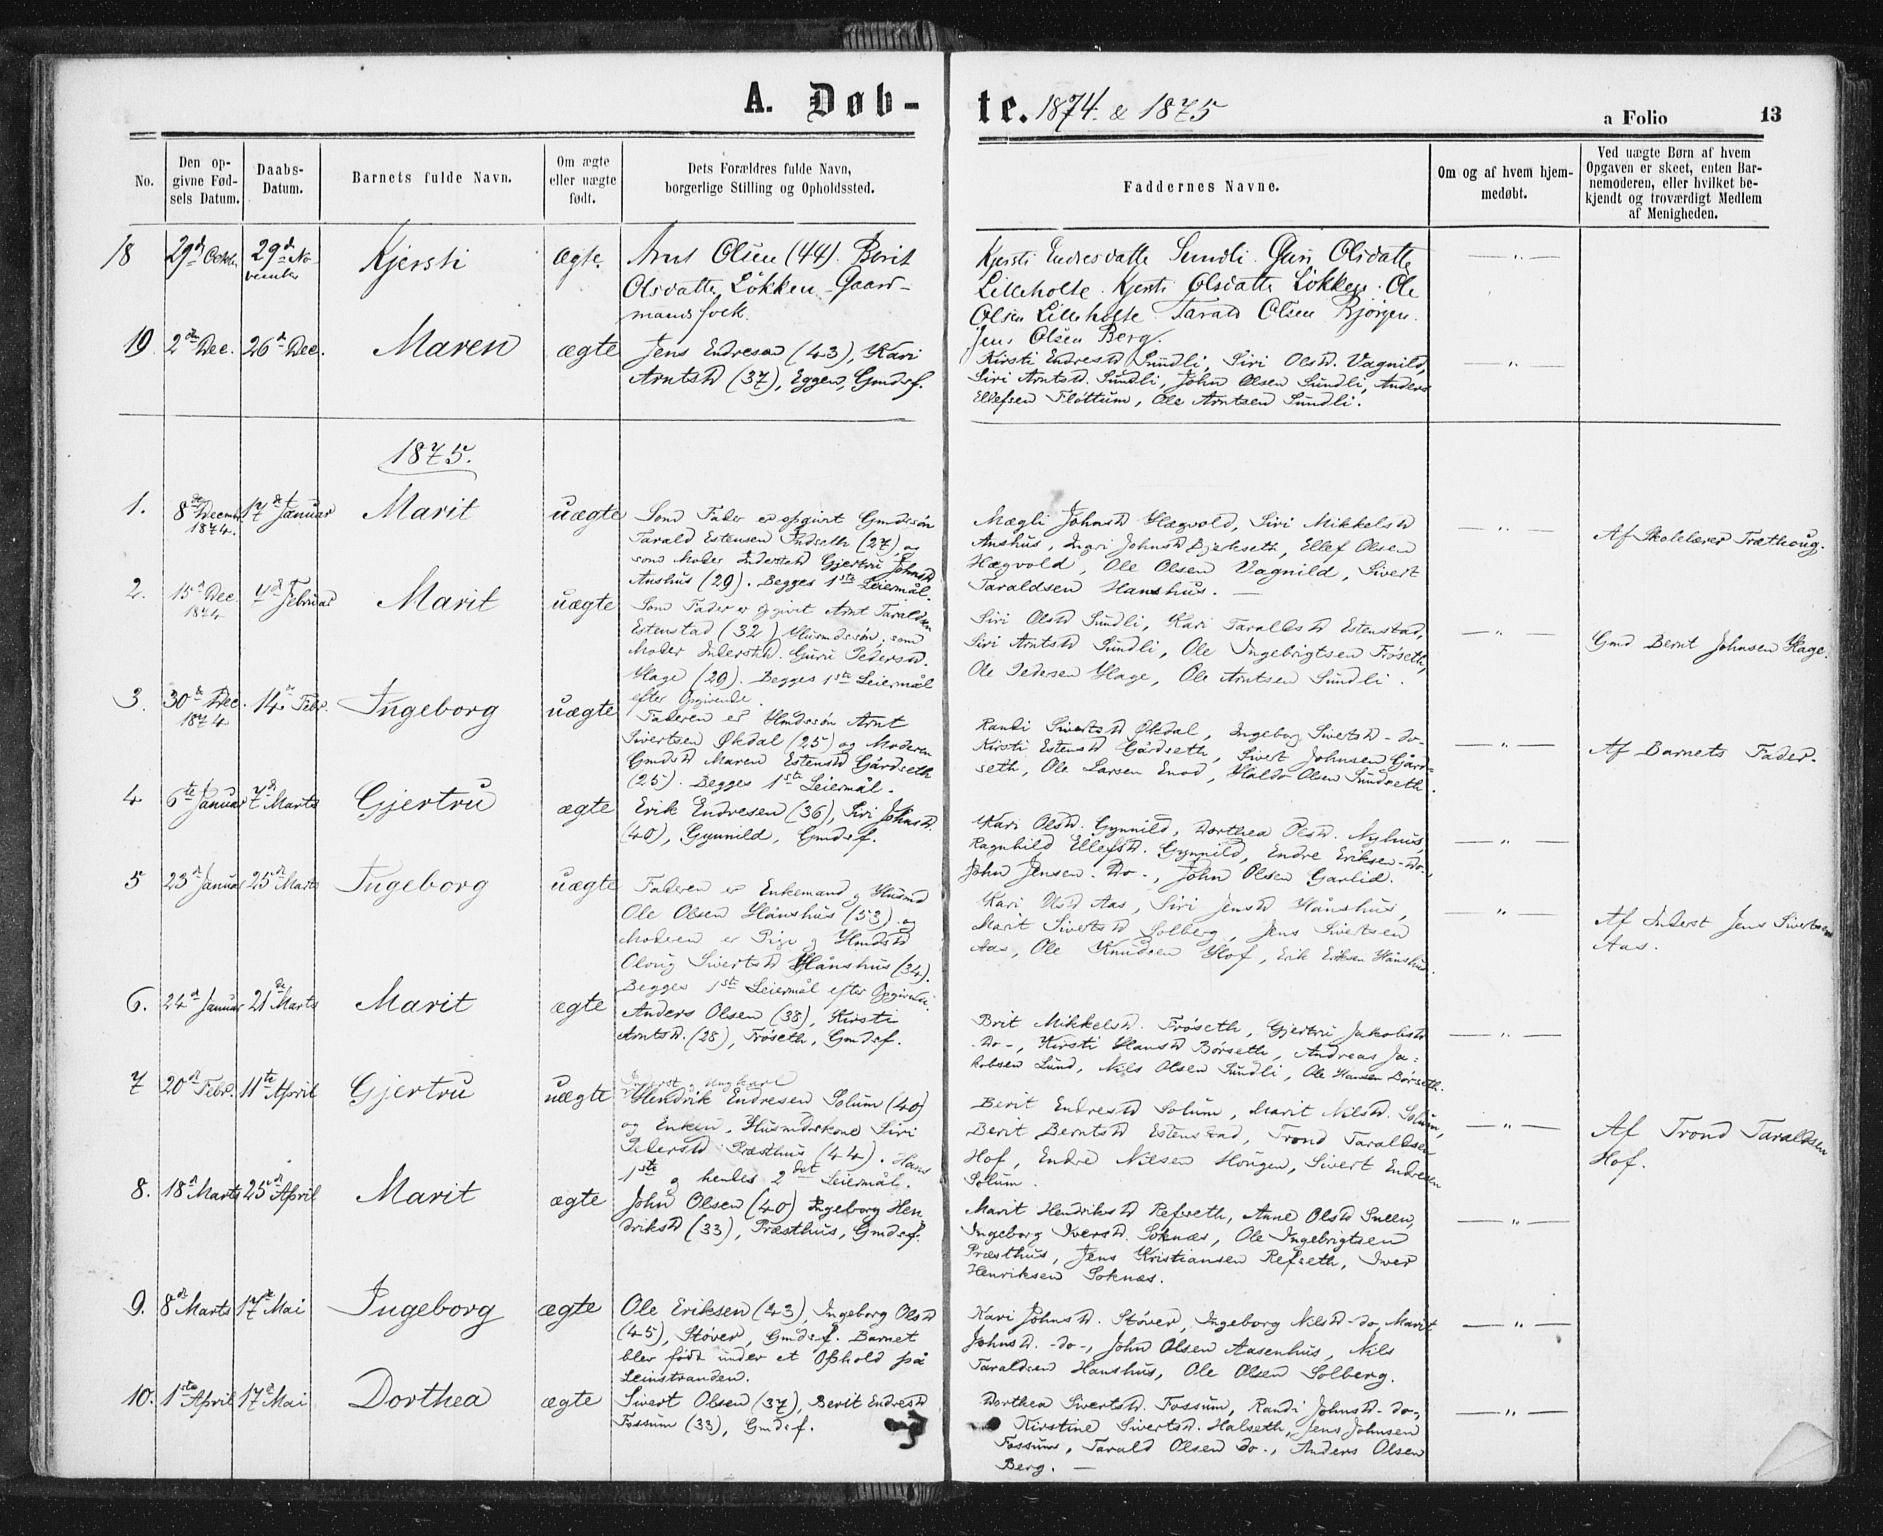 A. Døb-
te. 1874. & 1875
a Folio 13
No.
Den op-
givne Fød-
sels Datum.
Daabs-
Datum.
Barnets fulde Navn.
Om ægte
eller uægte
født.
Dets Forældres fulde Navn,
borgerlige Stilling og Opholdssted.
Faddernes Navne.
Om og af hvem hjem-
medøbt.
Ved uægte Børn af hvem
Opgaven er skeet, enten Bar-
nemoderen, eller hvilket be-
kjendt og troværdigt Medlem
af Menigheden.
18
29d Octbr.
29d No-
vember
Kjersti
ægte.
Arnt Olsen (44). Berit
Olsdatte Løkken - Gaard-
mandsfolk.
Kjersti Endresdatte Sundli. Guri Olsdatte
Lilleholte. Kjersti Olsdatte Løkken. Ole
Olsen Lilleholte Tarald Olsen Bjørgen.
Jens Olsen Berg.
— " —
19
2den Dec.
26d Dec.
Maren
ægte
Jens Endresen (43), Kari
Arntsd (37), Eggen, Gmdsf.
Kirsti Endresd Sundli, Siri Olsd. Vagnild,
Siri Arntsd. Sundli, John Olsen Sundli, Anders
Ellefsen Fløttum, Ole Arntsen Sundli.
— " —
1875.
1.
8de Decmbr
1874.
17de Januar
Marit
uægte
Som Fader er opgivt Gmdssøn
Tarald Estensen Indseth (27), og
som Moder Inderstd Gjertru Johnsd
Anshus (29). Begges 1ste Leiermål.
Mægli Johnsd Hægvold, Siri Mikkelsd
Anshus, Ingri Johnsd Bjerkseth, Ellef Olsen
Hægvold, Ole Olsen Vagnild, Sivert
Taraldsen Hanshus. —
— " —
Af Skolelærer Træthoug.
2.
15d Dec.
1874
4d Februar
Marit
uægte
Som Fader er opgivt Arnt Taraldsen
Estenstad (32) Husmdssøn, som
Moder Inderstd. Guru Pedersd.
Hage (29). Begges 1ste Leiermål
efter Opgivende.
Siri Olsd Sundli, Kari Taraldsd Estenstad,
Siri Arntsd Sundli, Ole Ingebrigtsen Frøseth,
Ole Pedersen Hage, Ole Arntsen Sundli.
— " —
Gmd Bernt Johnsen Hage.
3.
30d Dec.
1874
14d Febr.
Ingeborg
uægte
Faderen er Hmdssøn Arnt
Sivertsen Økdal (25) og Moderen
Gmdsd Maren Estensd Gårdseth
(25). Begges 1ste Leiermål.
Randi Sivertsd Økdal, Ingeborg Sivertsd - do -
Kirsti Estensd Gårdseth, Sivert Johnsen Gård-
seth, Ole Larsen Enod, Haldo Olsen Sundseth.
— " —
Af Barnets Fader.
4
6te Januar
7d Marts
Gjertru
ægte
Erik Endresen (36), Siri Johnsd.
(40), Gynnild, Gmdsf.
Kari Olsd. Gynnild, Dorthea Olsd. Nyhus,
Ragnhild Ellefsd. Gynnild, Endre Eriksen - Do -,
John Jensen. Do -, John Olsen Garlid.
— " —
5
23d Januar
25d Marts
Ingeborg
uægte
Faderen er Enkemand og Husmd
Ole Olsen Hånshus (53) og
Moderen er Pige og Hmdsd
Oloug Sivertsd Hånshus (34).
Begges 1ste Leiermål efter Opgivende.
Kari Olsd Aas, Siri Jensd Hånshus,
Marit Sivertsd Solberg, Jens Sivertsen
Aas, Ole Knudsen Hof, Erik Eriksen Hånshus.
— " —
Af Inderst Jens Sivertsen
Aas.
6.
24d Januar
21de Marts
Marit
ægte
Anders Olsen (38), Kirsti
Arntsd. (28), Frøseth, Gmdsf.
Brit Mikkelsd. Frøseth, Gjertru Jakobsd
Do -, Kirsti Hansd Børseth, Andreas Ja-
kobsen Lund, Nils Olsen Sundli, Ole Hansen Børseth.
— " —
7
20d Febr.
11te April
Gjertru
uægte
Inderst og Ungkarl
Hendrik Endresen Solum (40)
og Enken, Husmdskone Siri
Pedersd Præsthus (44). Hans
1ste og hendes 2det Leiermål.
Berit Endresd Solum, Marit Nilsd. Solum,
Berit Berntsd Estenstad, Trond Taraldsen
Hof, Endre Nilsen Hougen, Sivert Endresen
Solum.
— " —
Af Trond Taraldsen
Hof.
8.
18d Marts
25d April
Marit
ægte
John Olsen (40) Ingeborg Hen
driksd (33), Præsthus, Gmdsf.
Marit Hendriksd Refseth, Anne Olsd Sneen,
Ingeborg Iversd. Soknæs, Ole Ingebrigtsen
Præsthus, Jens Kristiansen Refseth, Iver
Henriksen Soknæs.
— " —
9.
8d Marts
17de Mai
Ingeborg
ægte
Ole Eriksen (43), Ingeborg Olsd
(45), Støver, Gmdsf. Barnet
blev født under et Ophold på
Leinstranden.
Kari Johnsd. Støver, Ingeborg Nilsd - do, Marit
Johnsd. - do -, John Olsen Aasenhus, Nils
Taraldsen Hanshus, Ole Olsen Solberg.
— " —
10.
1ste April
17d Mai
Dorthea
ægte
Sivert Olsen (37), Berit Endresd
Fossum (33), Gmdsf.
Dorthea Sivertsd. Fossum, Randi Johnsd - do -,
Kirstine Sivertsd. Halseth, Jens Johnsen
Fossum, Tarald Olsen do -, Anders Olsen
Berg. —
— " —